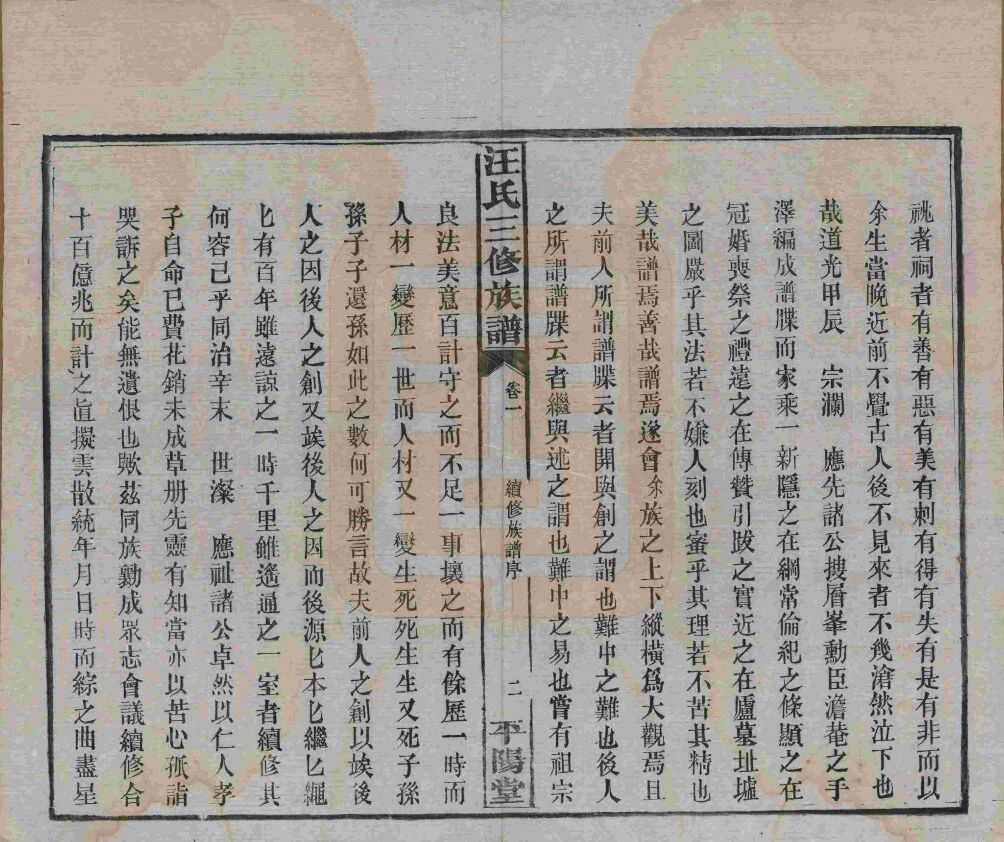 祧者祠者有善有惡有美有刺有得有失有是有非而以
余生當晚近前不覺古人後不見來者不幾滄然泣下也
哉道光甲辰　宗瀾　應先諸公搜層峯勳臣澹菴之手
澤編成譜牒而家乘一新隱之在綱常倫紀之條顯之在
冠婚喪祭之禮遠之在傳贊引跋之實近之在廬墓址墟
之圖嚴乎其法若不嫌人刻也蜜乎其理若不苦其精也
美哉譜焉善哉譜焉遂會余族之上下縱橫爲大觀焉且
夫前人所謂譜牒云者開與創之謂也難中之難也後人
之所謂譜牒云者繼與述之謂也難中之易也嘗有祖宗
汪氏三修族譜　卷一　續修族譜序　二　平陽堂
良法美意百計守之而不足一事壞之而有餘歷一時而
人材一變歷一世而人材又一變生死死生生又死子孫
孫子子還孫如此之數何可勝言故夫前人之創以竢後
人之因後人之創又竢後人之因而後源匕本匕繼匕繩
匕有百年雖遠諒之一時千里雖遙通之一室者續修其
何容已乎同治辛未　世濚　應祉諸公卓然以仁人孝
子自命已費花銷未成草册先靈有知當亦以苦心孤詣
哭訴之矣能無遺恨也歟茲同族勷成眾志會議續修合
十百億兆而計之眞擬雲散統年月日時而綜之曲盡星